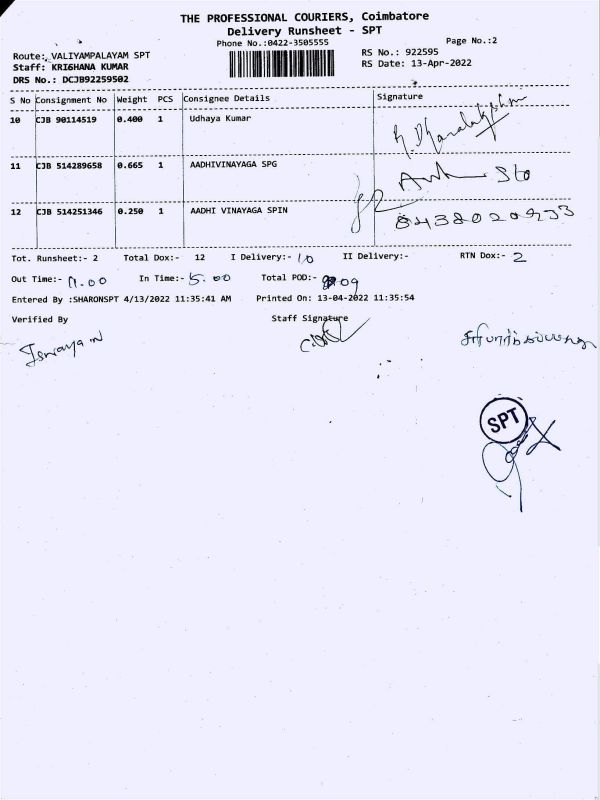 THE PROFESSIONAL COURIERS, Coimbatore
Delivery Runsheet - SPT
Phone No.:0422-3505555
Page No.:2
Route: VALIYAMPALAYAM SPT
RS No.: 922595
Staff: KRISHANA KUMAR
RS Date: 13-Apr-2022
DRS No.: DCJB92259502
S No Consignment No Weight PCS Consignee Details Signature
10 CJB 90114519 0.400 1 Udhaya Kumar R. Dhanalakshmi
11 CJB 514289658 0.665 1 AADHIVINAYAGA SPG
12 CJB 514251346 0.250 1 AADHI VINAYAGA SPIN
Tot. Runsheet:- 2 Total Dox:- 12 I Delivery:- 10 II Delivery:- RTN Dox:- 2
Out Time:- 11.00 In Time:- 15.00 Total POD:- 09
Entered By :SHARONSPT 4/13/2022 11:35:41 AM Printed On: 13-04-2022 11:35:54
Verified By Staff Signature
SPT